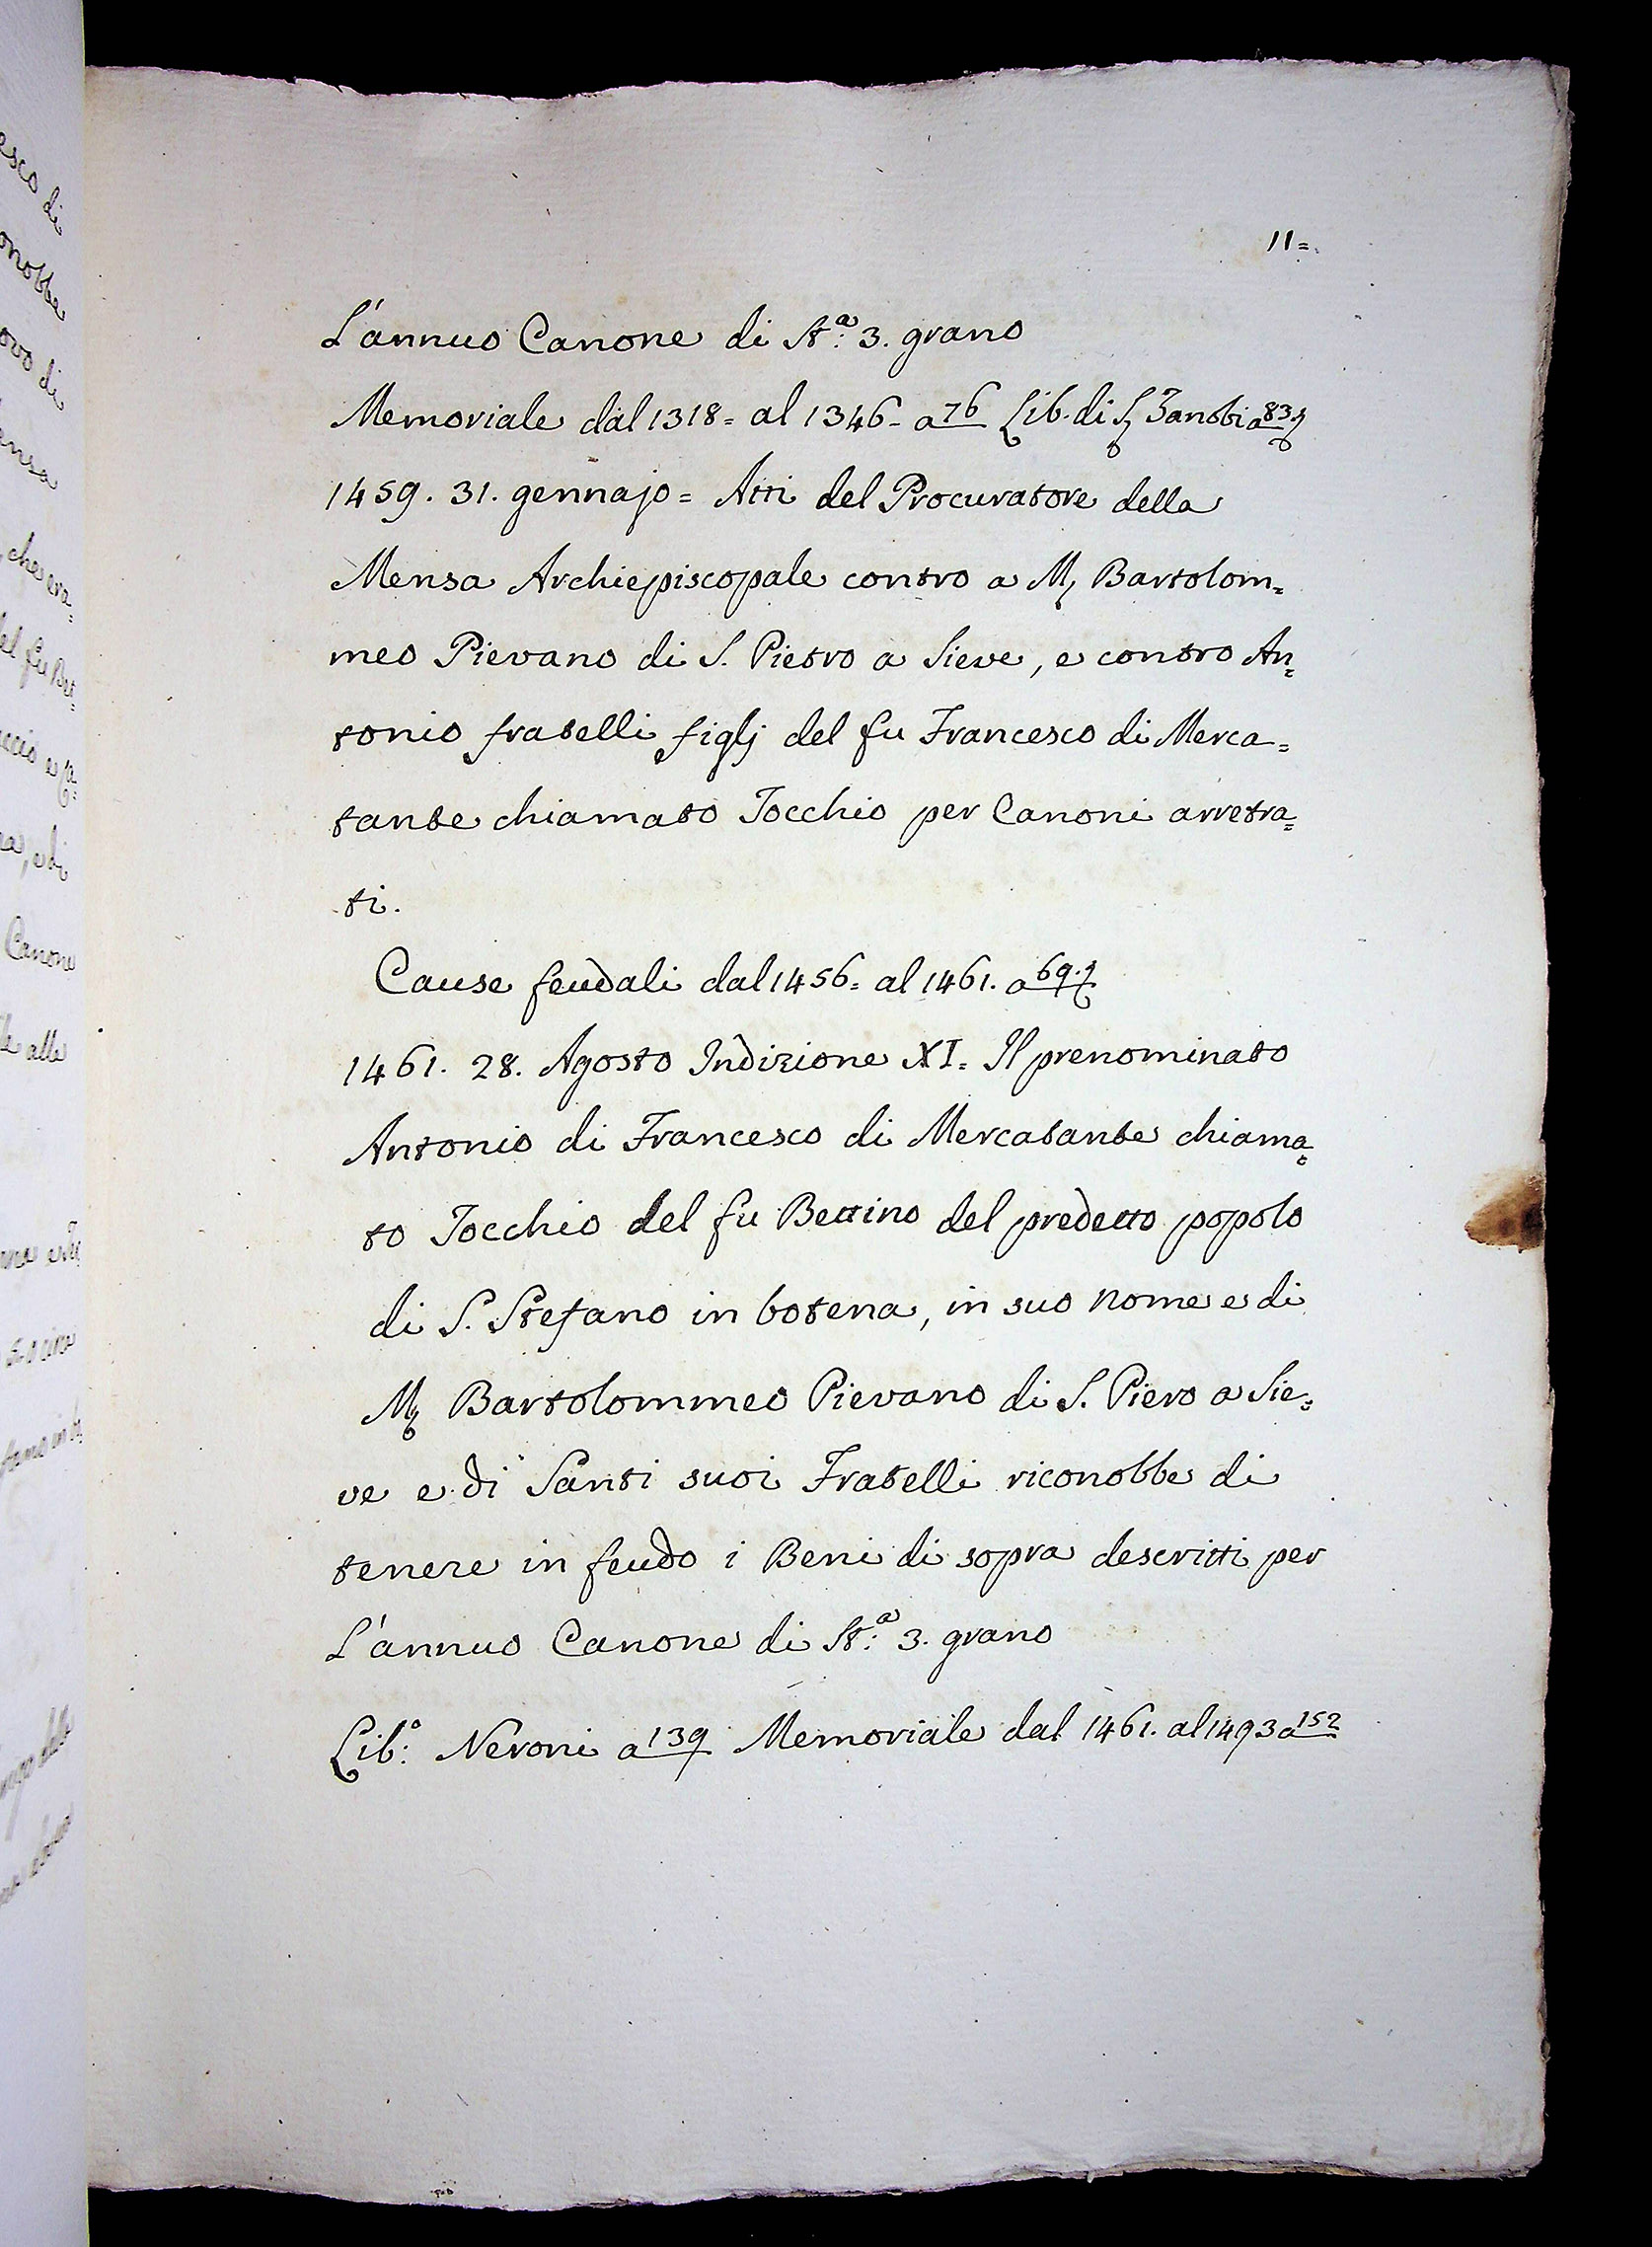 11=
L'annuo Canone di St.ª 3. grano
Memoriale dal 1318= al 1346- a 76 Lib. di S. Zanobi a 83.
1459. 31. gennajo= Atti del Procuratore della
Mensa Archiepiscopale contro a M. Bartolom=
meo Pievano di S. Pietro a Sieve, e contro An=
tonio fratelli figlj del fu Francesco di Merca=
tante chiamato Tocchio per Canoni arretra=
ti.
Cause feudali dal 1456= al 1461. a 69.
1461. 28. Agosto Indizione XI= Il prenominato
Antonio di Francesco di Mercatante chiama=
to Tocchio del fu Bettino del predetto popolo
di S. Stefano in botena, in suo nome e di
M. Bartolommeo Pievano di S. Piero a Sie=
ve e di Santi suoi Fratelli riconobbe di
tenere in feudo i Beni di sopra descritti per
L'annuo Canone di St.ª 3. grano
Lib.º Neroni a 139 Memoriale dal 1461. al 1493 a 152